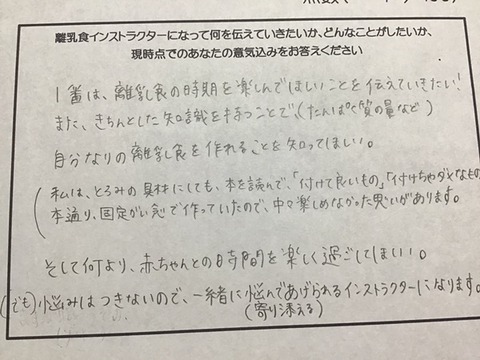 離乳食インストラクターになって何を伝えていきたいか、どんなことがしたいか、
現時点でのあなたの意気込みをお答えください
1番は、離乳食の時期を楽しんでほしいことを伝えていきたい!
また、きちんとした知識を持つことで、(たんぱく質の量など)
自分なりの離乳食を作れることを知ってほしい。
(私は、とろみの具材にしても、本を読んで、「付けて良いもの」「付けちゃダメなもの」
本通り、固定がい念で作っていたので、中々楽しめなかった思いがあります。
そして何より、赤ちゃんとの時間を楽しく過ごしてほしい。
(でも)悩みはつきないので、一緒に悩んであげられるインストラクターになります。
(寄り添える)